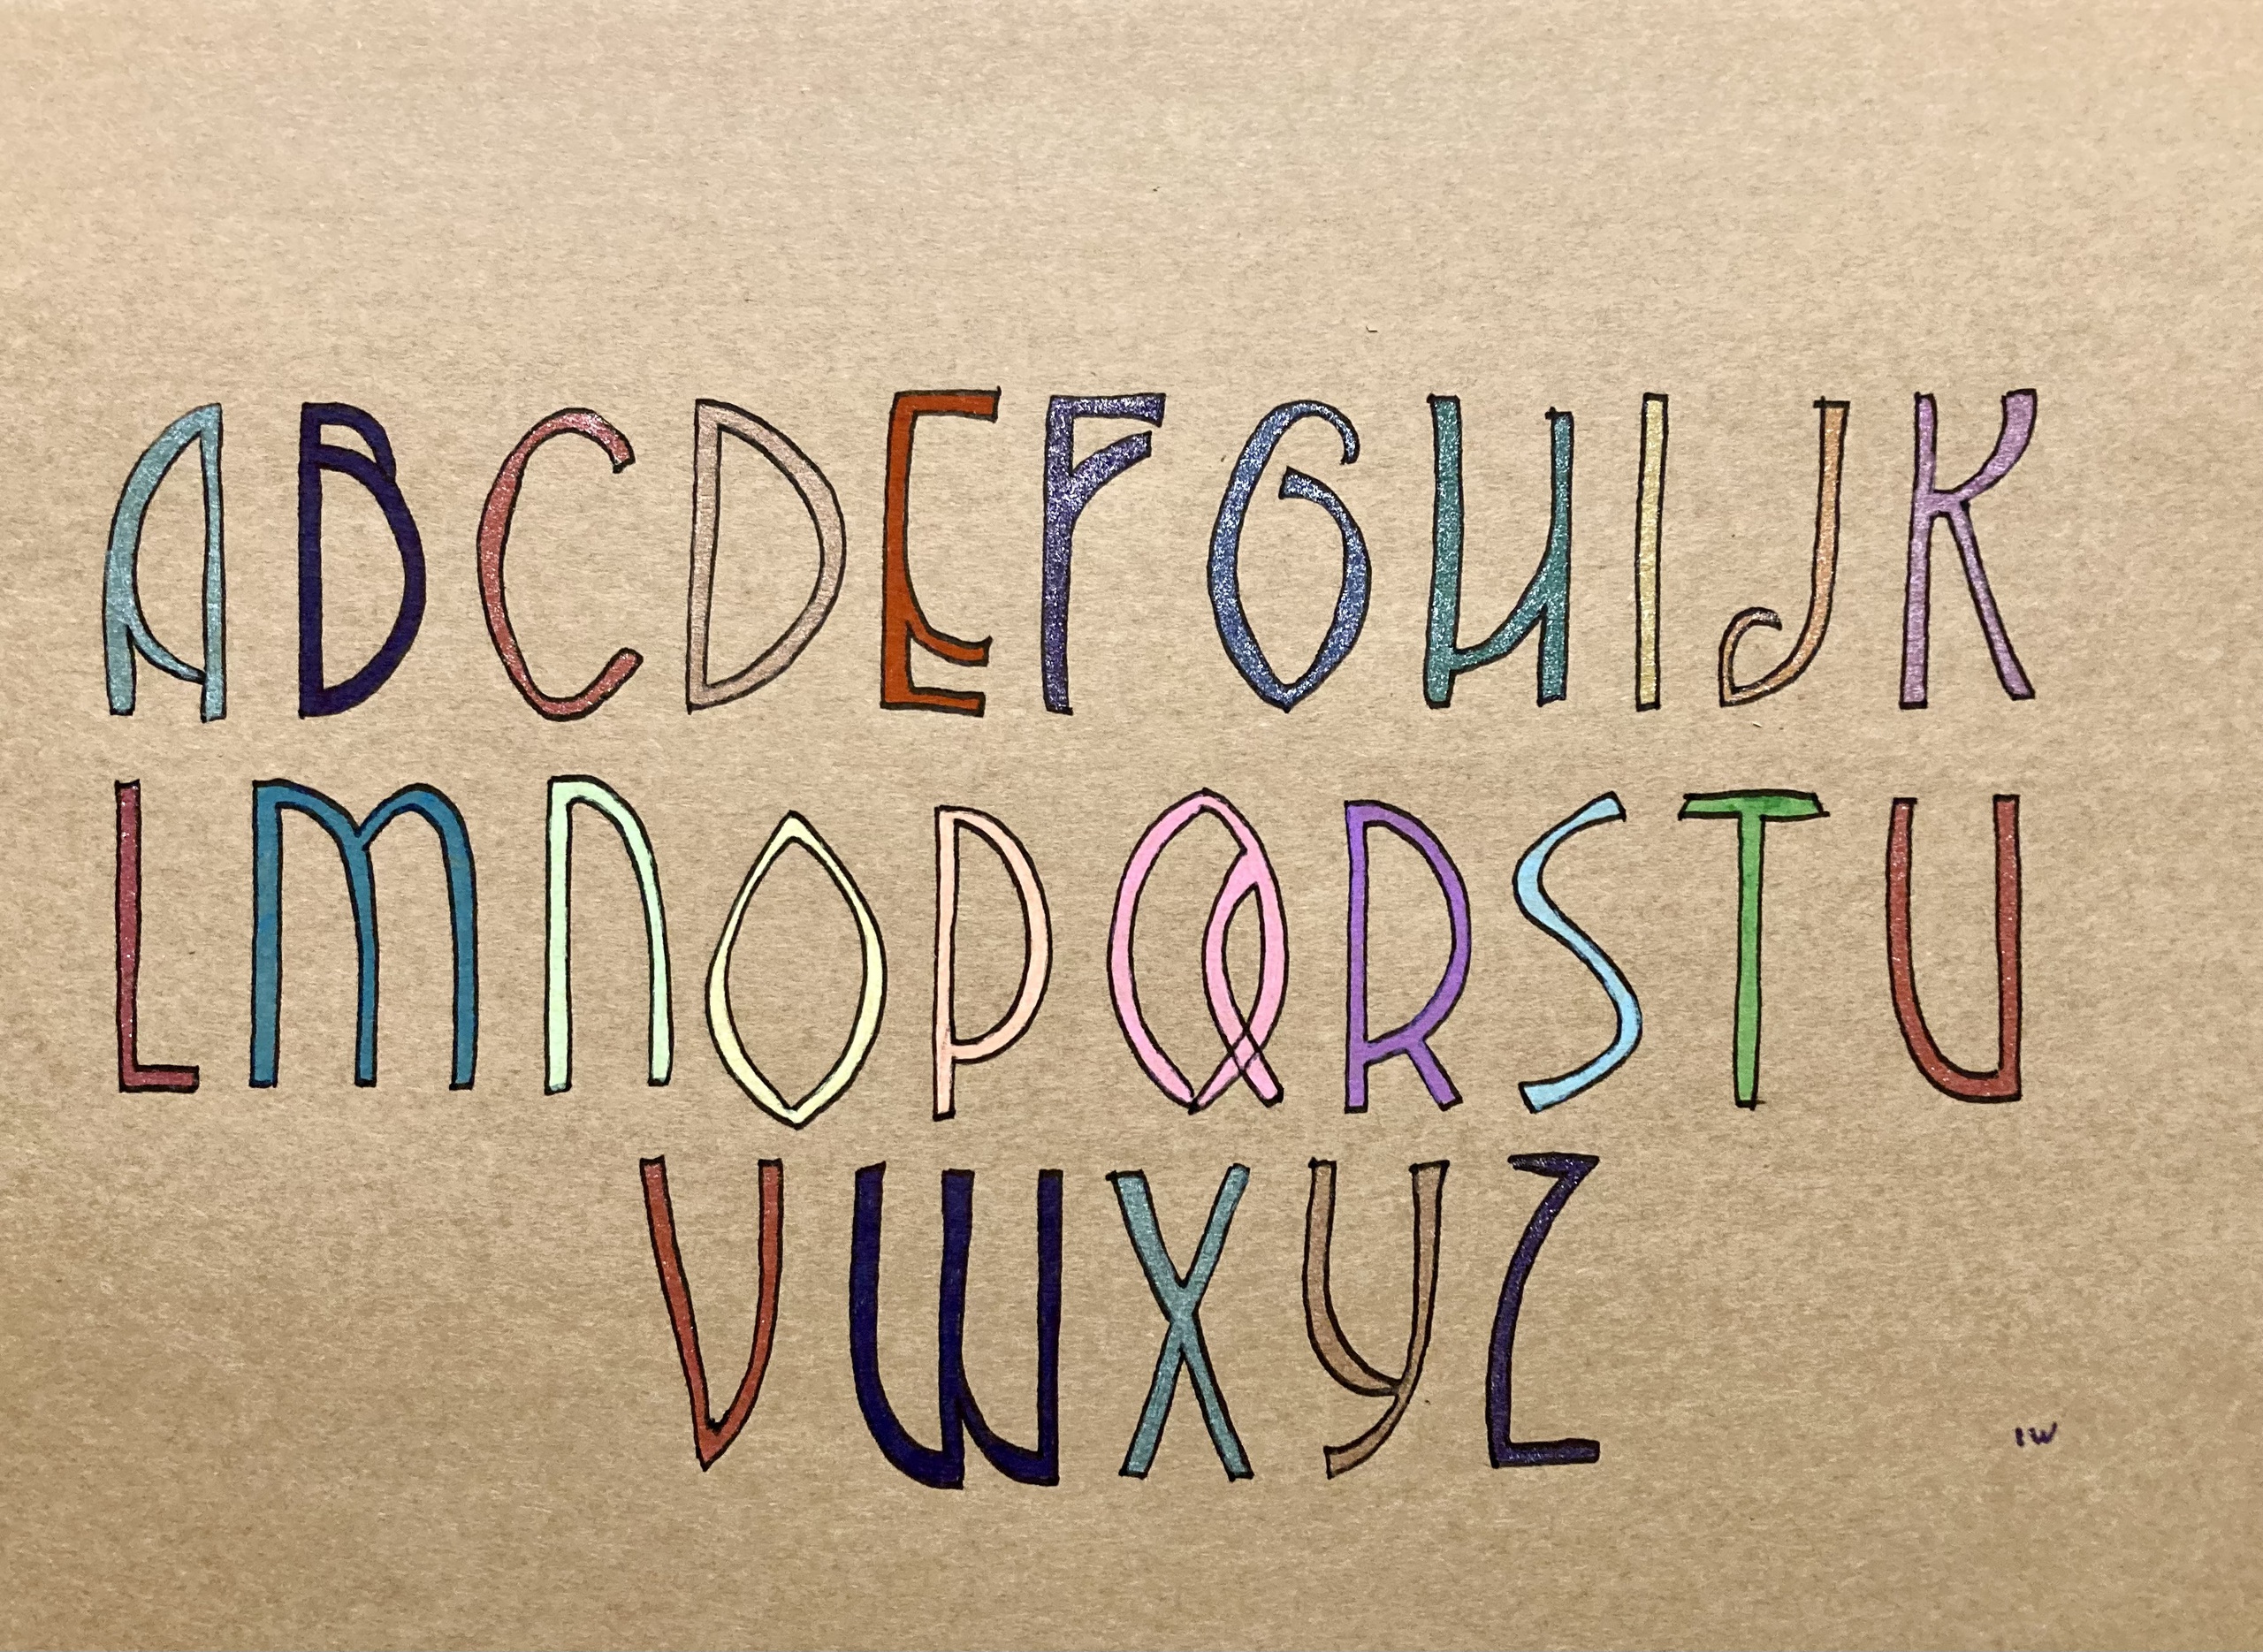 ABCDEFGHIJK
LMNOPQRSTU
VWXYZ
IW